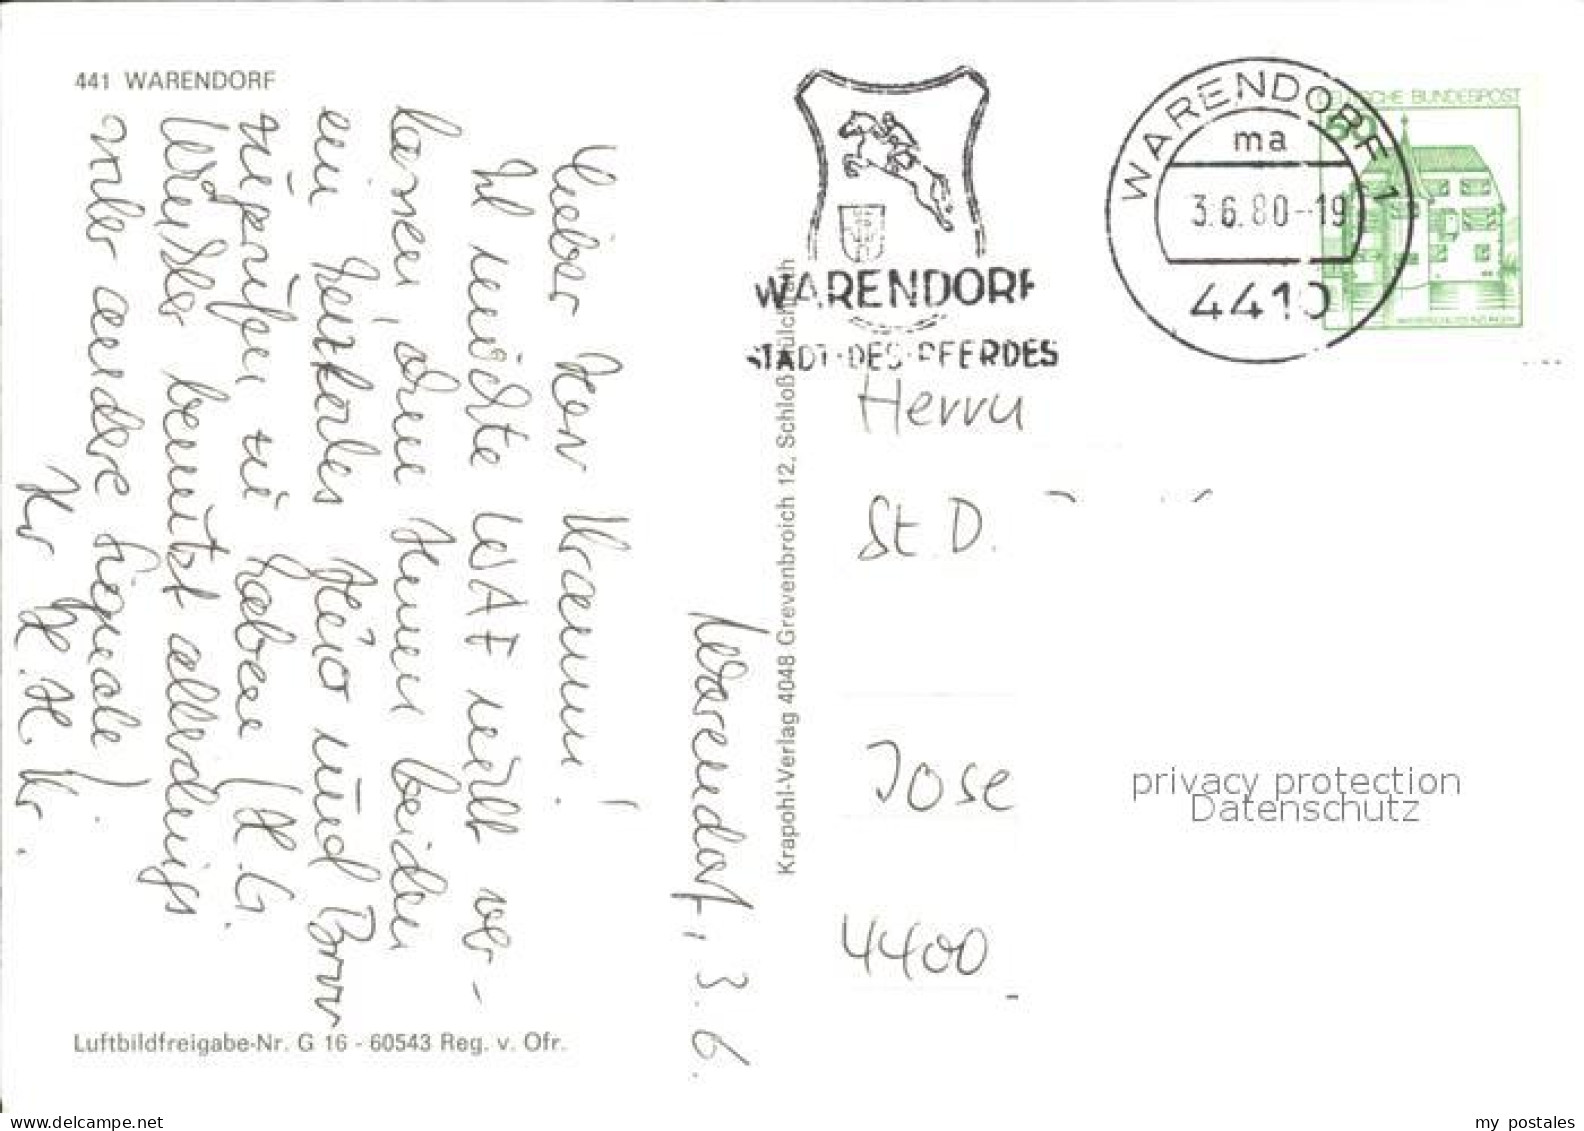 441 WARENDORF
Warendorf, 3.6.
Lieber Herr Kraemer!
Ich möchte WAF nicht ver-
lassen, ohne Ihnen beiden
ein herzliches und
zugerufen zu haben (H. G.
benutzt allerdings
andere Signale).
Ihr H. H. Kr.
Luftbildfreigabe-Nr. G 16 - 60543 Reg. v. Ofr.
Krapohl-Verlag 4048 Grevenbroich 12, Schloß
WARENDORF
STADT·DES·PFERDES
WARENDORF 1
ma
3.6.80-19
4410
DEUTSCHE BUNDESPOST
Herrn
St. D.
Jose
4400
privacy protection
Datenschutz
www.delcampe.net
my postales